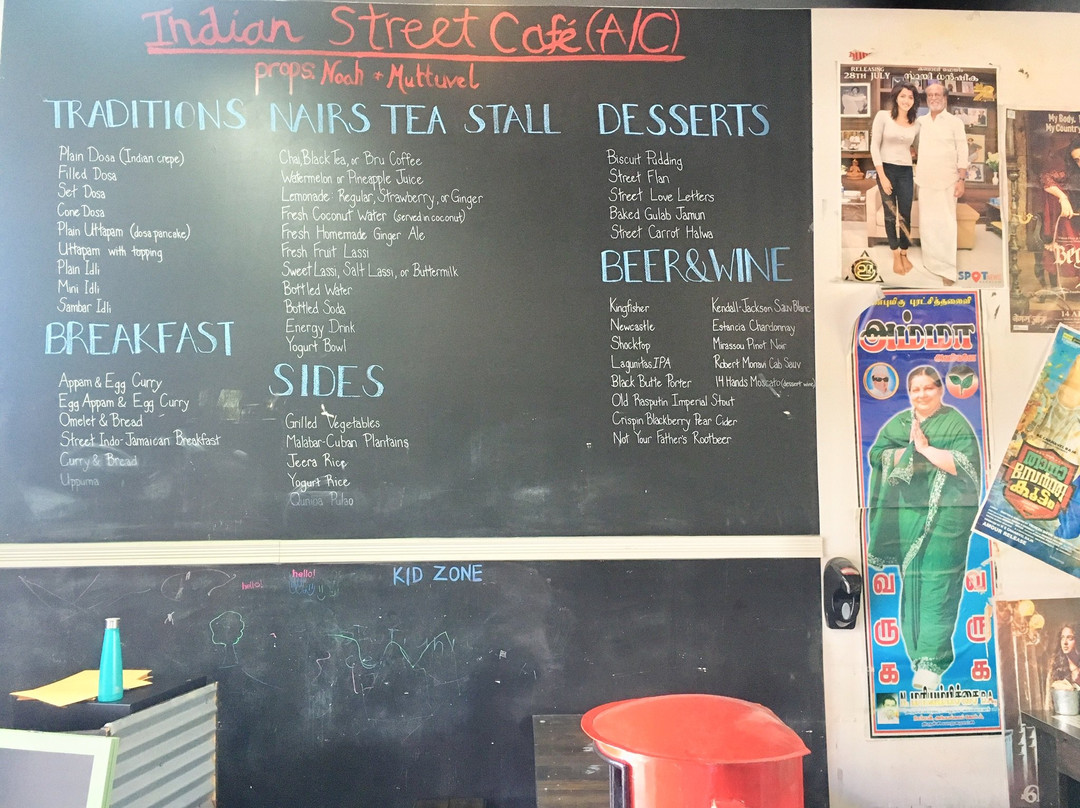 Indian Street Café (A/C)
props: Noah + Muttuvel
TRADITIONS
Plain Dosa (Indian crepe)
Filled Dosa
Set Dosa
Cone Dosa
Plain Uttapam (dosa pancake)
Uttapam with topping
Plain Idli
Mini Idli
Sambar Idli
BREAKFAST
Appam & Egg Curry
Egg Appam & Egg Curry
Omelet & Bread
Street Indo-Jamaican Breakfast
Curry & Bread
Uppuma
NAIRS TEA STALL
Chai, Black Tea, or Bru Coffee
Watermelon or Pineapple Juice
Lemonade: Regular, Strawberry, or Ginger
Fresh Coconut Water (served in coconut)
Fresh Homemade Ginger Ale
Fresh Fruit Lassi
Sweet Lassi, Salt Lassi, or Buttermilk
Bottled Water
Bottled Soda
Energy Drink
Yogurt Bowl
SIDES
Grilled Vegetables
Malabar-Cuban Plantains
Jeera Rice
Yogurt Rice
Qunioa Pulao
DESSERTS
Biscuit Pudding
Street Flan
Street Love Letters
Baked Gulab Jamun
Street Carrot Halwa
BEER&WINE
Kingfisher
Newcastle
Shocktop
Lagunitas IPA
Black Butte Porter
Old Rasputin Imperial Stout
Crispin Blackberry Pear Cider
Not Your Father's Rootbeer
Kendall-Jackson Sauv Blanc
Estancia Chardonnay
Mirassou Pinot Noir
Robert Monavi Cab Sauv
14 Hands Moscato (dessert wine)
hello!
hello!
KID ZONE
RELEASING
28TH JULY
SPOT
My Body.
My Country
Be
14 A
புரட்சித்தலைவி
அம்மா
வ
ரு
க
AMGUN RELEASE